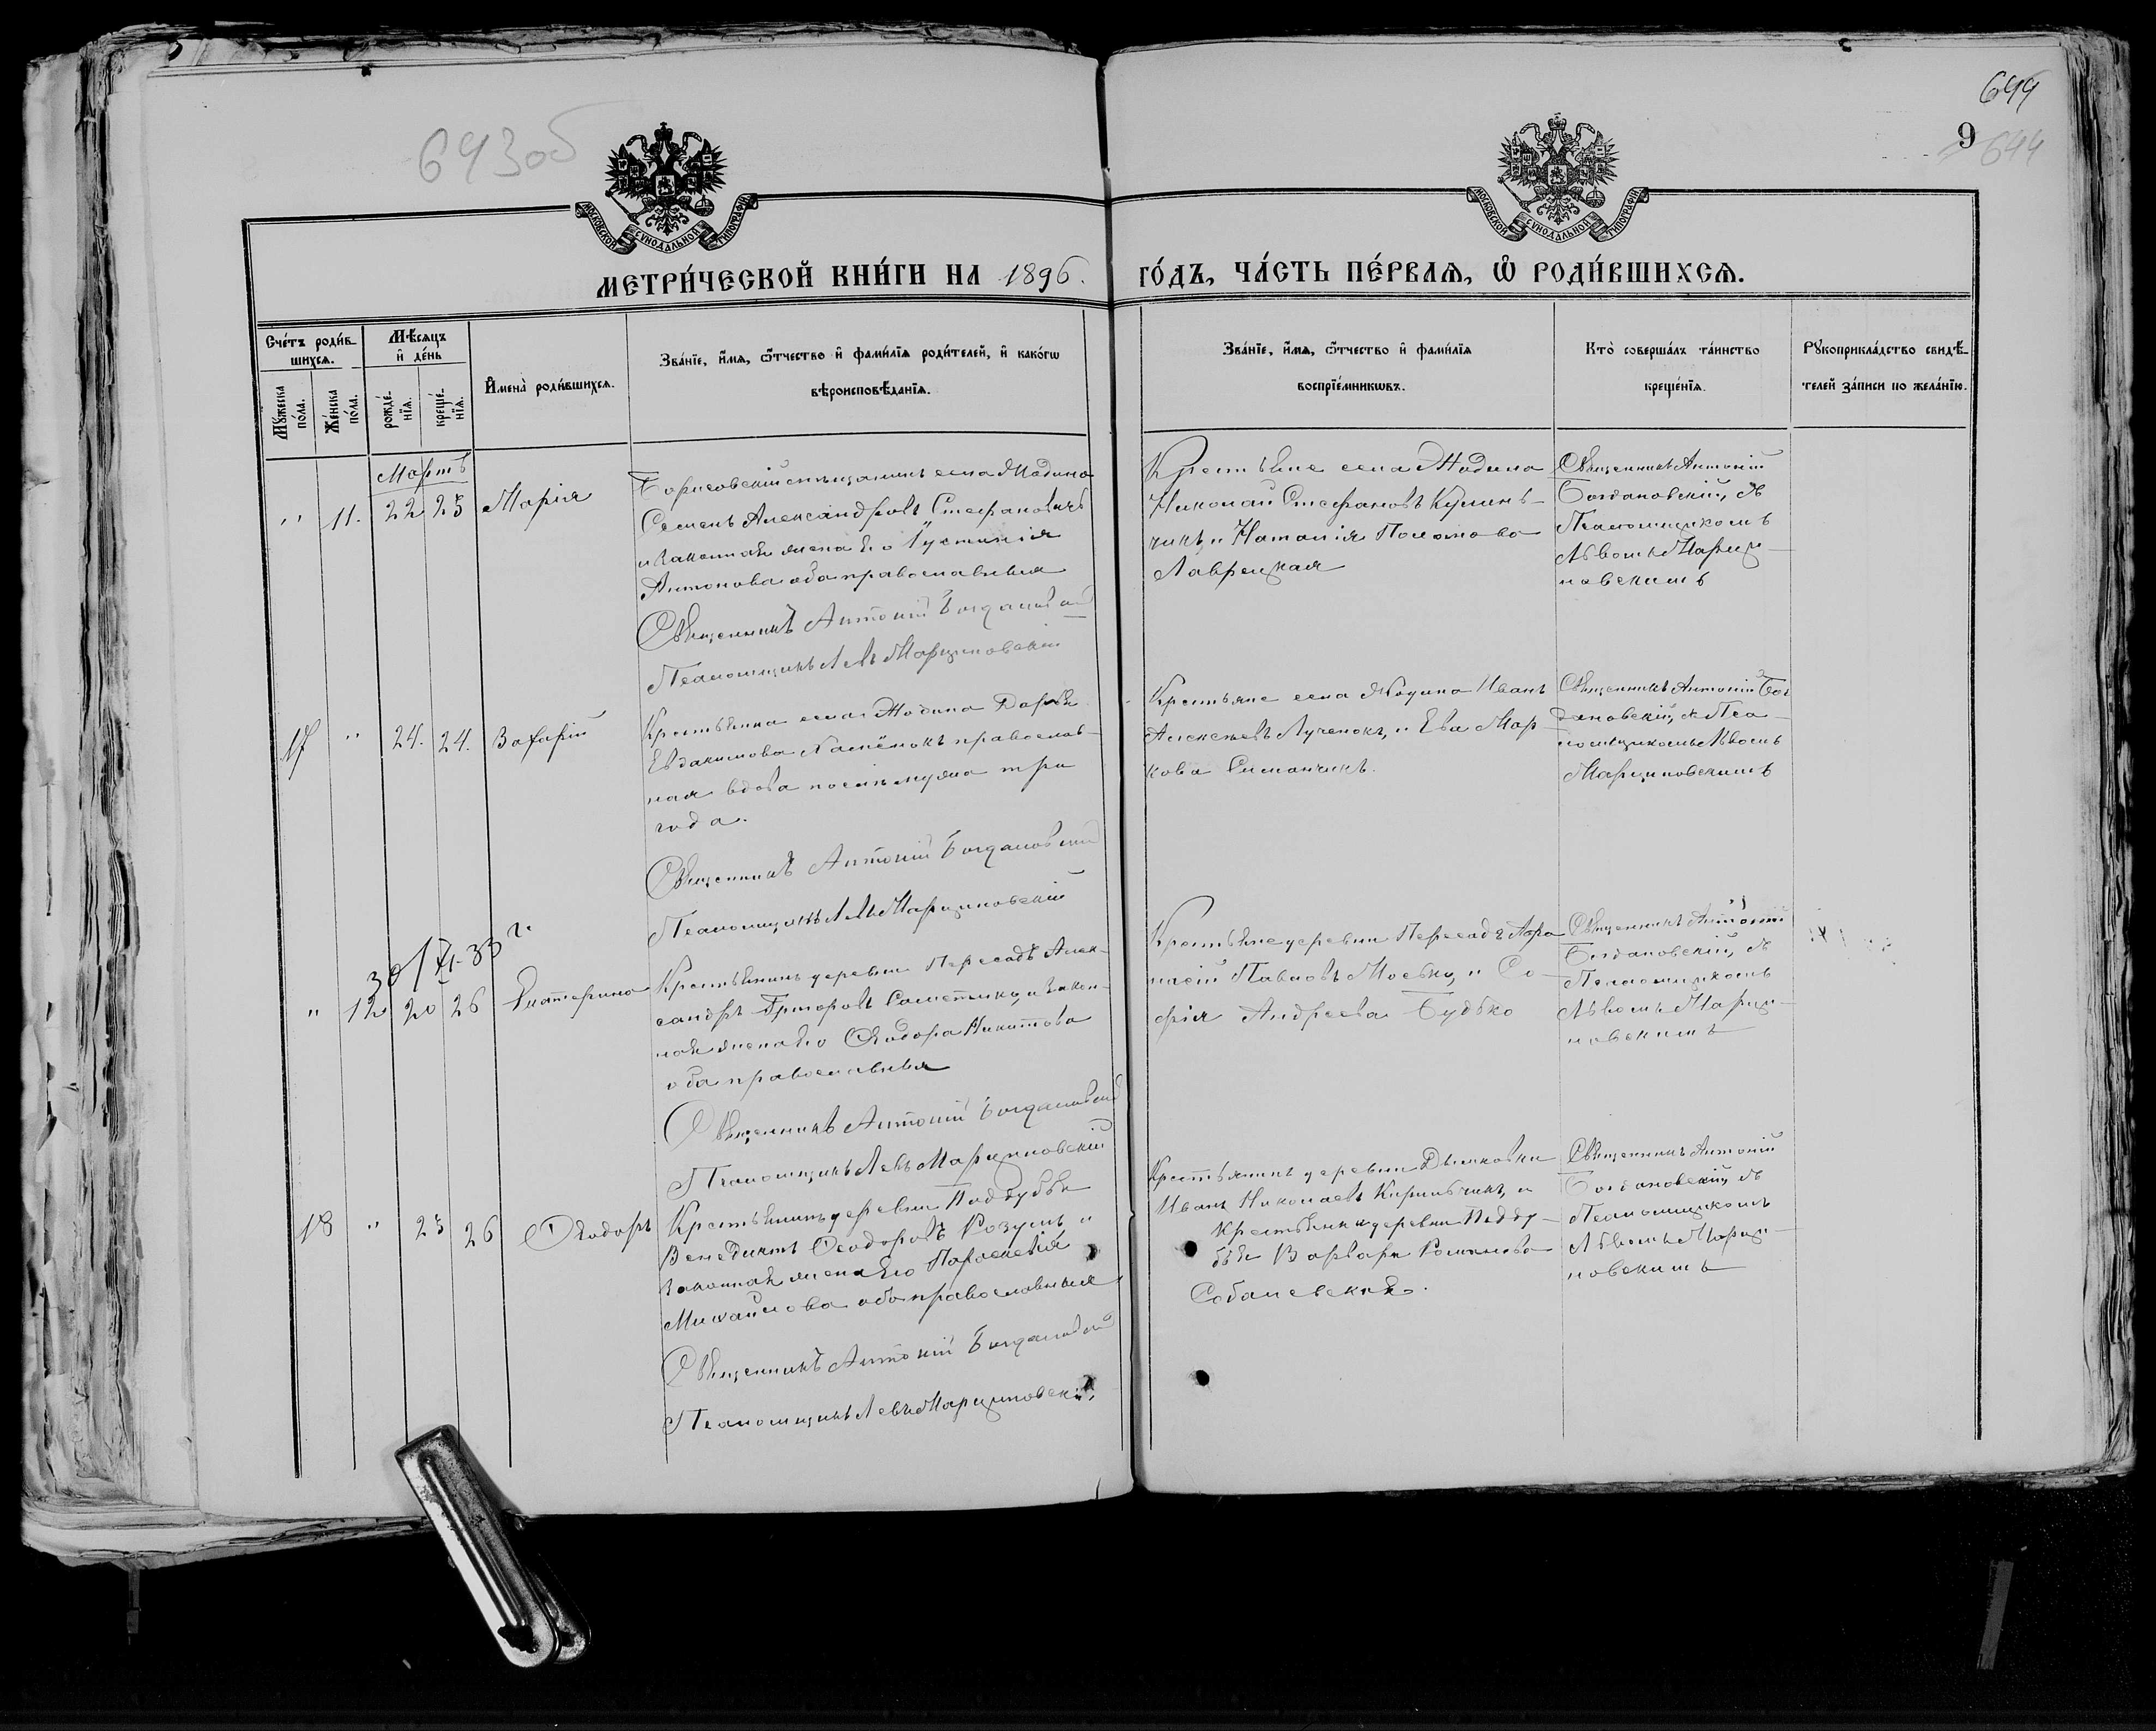 643об
644
9
644
МОСКОВСКОЙ СѴНОДАЛЬНОЙ ТИПОГРАФІИ
МОСКОВСКОЙ СѴНОДАЛЬНОЙ ТИПОГРАФІИ
МЕТРИ́ЧЕСКОЙ КНИ́ГИ НА 1896. ГО́ДЪ, ЧА́СТЬ ПЕ́РВАѦ, Ѿ РОДИ́ВШИХСѦ.
Сче́тъ роди́в-
шихсѧ.
Мꙋжеска по́ла.
Же́нска по́ла.
Мѣ́сѧцъ
и҆ де́нь
рожде́-
нїѧ.
креще́-
нїѧ.
И҆мена̀ роди́вшихсѧ.
Зва́нїе, и҆́мѧ, ѻ҆́тчество и҆ фами́лїѧ роди́телей, и҆ како́гѡ
вѣроисповѣ́данїѧ.
Зва́нїе, и҆́мѧ, ѻ҆́тчество и҆ фами́лїѧ
воспрїе́мникѡвъ.
Кто̀ соверша́лъ та́инство
креще́нїѧ.
Рꙋкоприкла́дство свидѣ́-
телей за́писи по жела́нїю.
Мартъ
" 11. 22 25 Марія
Борисовскій мѣщанинъ села Жодина
Семенъ Александровъ Стефановичъ
и законная жена его Іустинія
Антонова оба православныя
Священникъ Антоній Богдановскій
Псаломщикъ Левъ Марциновскій
Крестьяне села Жодина
Николай Стефановъ
и Наталія
Лаврецкая
Священникъ Антоній
Богдановскій, съ
Псаломщикомъ
Львомъ Марци-
новскимъ
17 " 24. 24. Захарій
Крестьянка села Жодина Дарья
Евдакимова православ-
ная вдова послѣ мужа три
года.
Священникъ Антоній Богдановскій
Псаломщикъ Левъ Марциновскій
Крестьяне села Жодина Иванъ
Алексѣевъ Лученокъ, и Ева Мар-
кова Симончикъ.
Священникъ Антоній Бог
дановскій, съ Пса-
ломщикомъ Львомъ
Марциновскимъ
30/VI-33 г.
" 12 20 26 Екатерина
Крестьянинъ деревни Пересадъ Алек-
сандръ Григоровъ и закон-
ная жена его Ѳеодора Никитова
оба православныя
Священникъ Антоній Богдановскій
Псаломщикъ Левъ Марциновскій
Крестьяне деревни Пересадъ Афа
насій Павловъ Мосько, и Со-
фія Андреева Будько
Священникъ Антоній
Богдановскій, съ
Псаломщикомъ
Львомъ Марци-
новскимъ
18 " 25 26 Ѳеодоръ
Крестьянинъ деревни Поддубья
Венедиктъ Ѳеодоровъ Розумъ, и
законная жена его Параскевія
Михайлова оба православныя
Священникъ Антоній Богдановскій
Псаломщикъ Левъ Марциновскій
Крестьянинъ деревни
Иванъ Николаевъ и
крестьянка деревни Подду-
бья Варвара Романова
Собалевская.
Священникъ Антоній
Богдановскій, съ
Псаломщикомъ
Львомъ Марци-
новскимъ